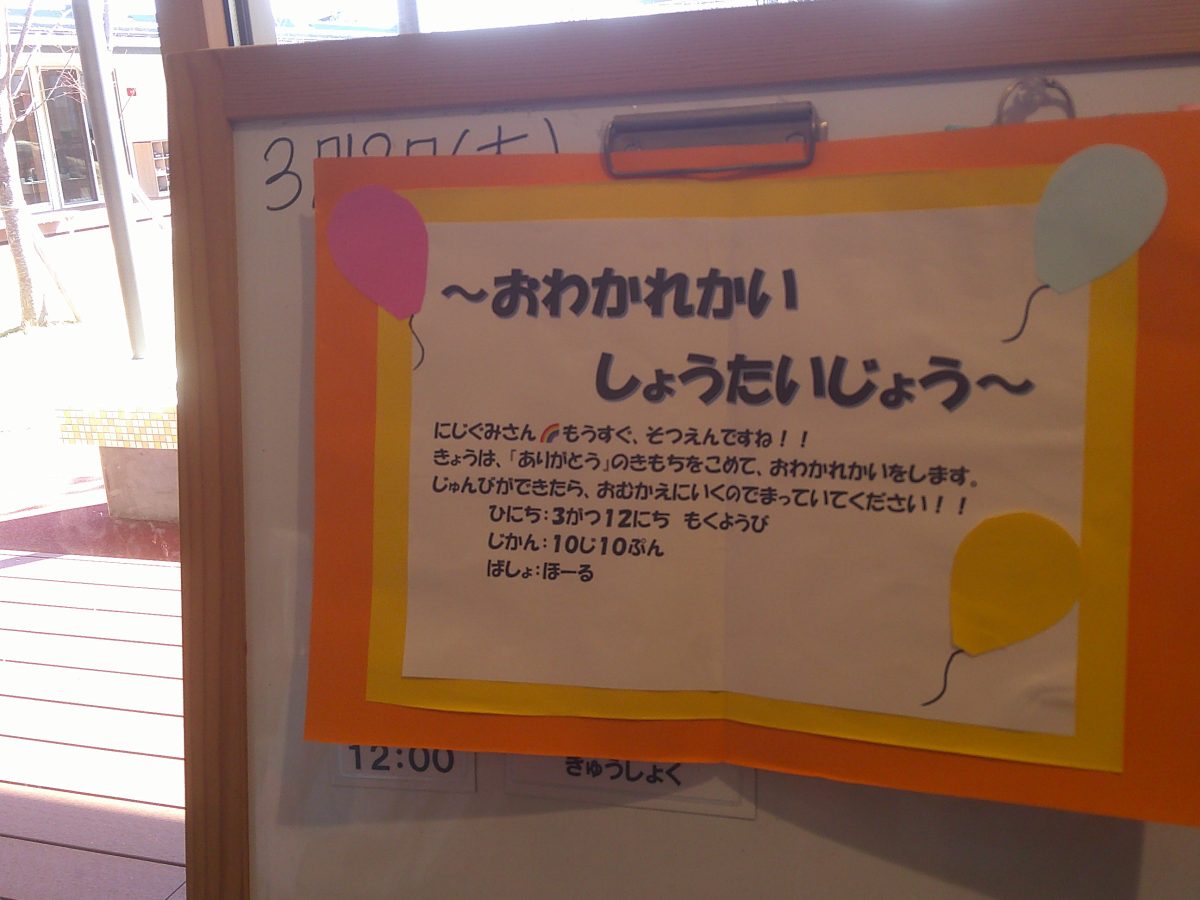 ～おわかれかい
しょうたいじょう～
にじぐみさん🌈もうすぐ、そつえんですね！！
きょうは、「ありがとう」のきもちをこめて、おわかれかいをします。
じゅんびができたら、おむかえにいくのでまっていてください！！
ひにち：3がつ12にち　もくようび
じかん：10じ10ぷん
ばしょ：ほーる
12:00
きゅうしょく